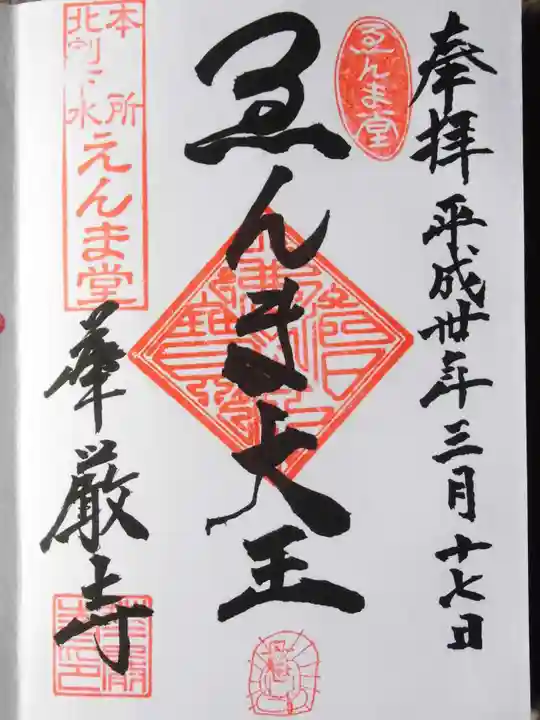 奉拝
平成卅年三月十七日
ゑんま堂
ゑんま大王
本所
北割下水
えんま堂
華厳寺